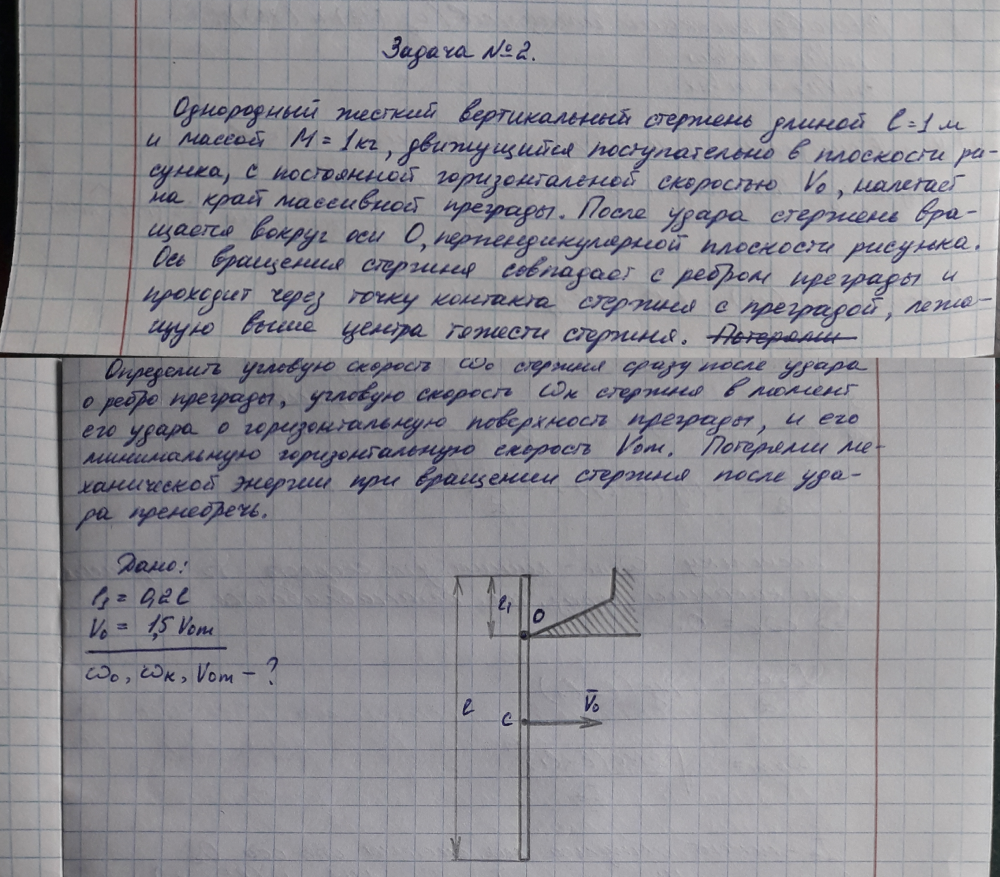 Задача №2.
Однородный жесткий вертикальный стержень длиной l = 1 м
и массой M = 1 кг, движущийся поступательно в плоскости ри-
сунка, с постоянной горизонтальной скоростью V₀, налетает
на край массивной преграды. После удара стержень вра-
щается вокруг оси O, перпендикулярной плоскости рисунка.
Ось вращения стержня совпадает с ребром преграды и
проходит через точку контакта стержня с преградой, лежа-
щую выше центра тяжести стержня. Потерями
Определить угловую скорость ω₀ стержня сразу после удара
о ребро преграды, угловую скорость ωк стержня в момент
его удара о горизонтальную поверхность преграды, и его
минимальную горизонтальную скорость V₀m. Потерями ме-
ханической энергии при вращении стержня после уда-
ра пренебречь.
Дано:
l₁ = 0,2l
V₀ = 1,5 V₀m
ω₀, ωк, V₀m - ?
l₁
O
l
C
V̄₀